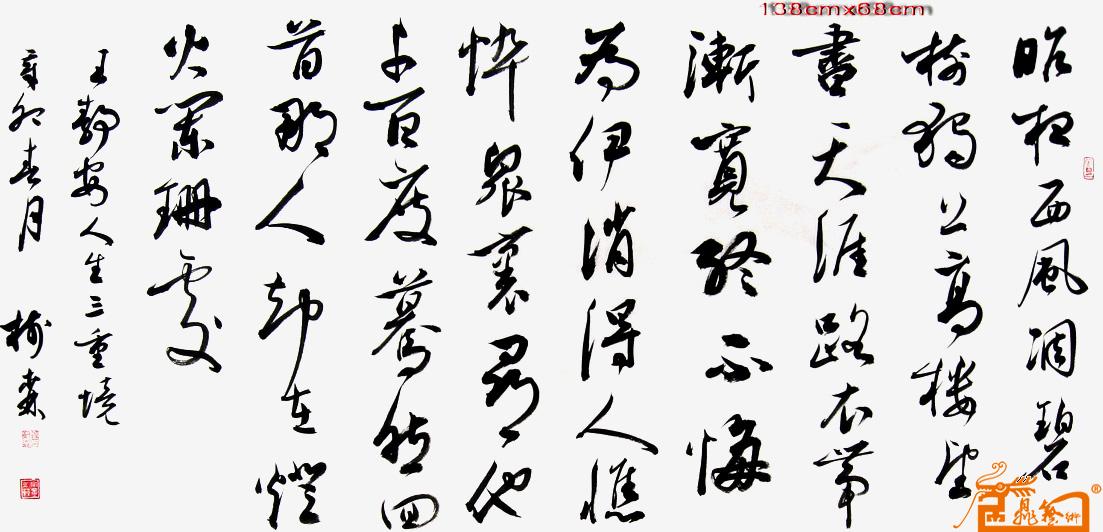 138cmx68cm
昨夜西風凋碧
樹獨上高樓望
盡天涯路衣帶
漸寬終不悔
為伊消得人憔
悴眾裏尋他
千百度驀然回
首那人却在燈
火闌珊處
王靜安人生三重境
辛卯春月 樹森